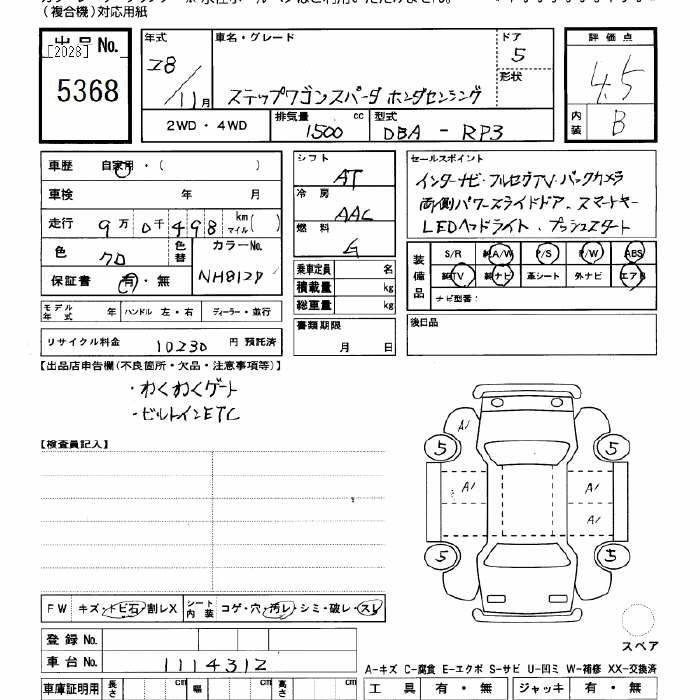 (複合機)対応用紙
出品No.
[2028]
5368
年式
28/11月
車名・グレード
ステップワゴンスパーダ ホンダセンシング
ドア
5
形状
評価点
4.5
内装
B
2WD・4WD
排気量
1500 cc
型式
DBA - RP3
車歴 自家用・( )
車検 年 月
走行 9万0千498 km マイル( )
色 クロ
色替
カラーNo.
NH812P
保証書 有・無
モデル年式 年
ハンドル 左・右
ディーラー・並行
リサイクル料金 10230 円 預託済
シフト
AT
冷房
AAC
燃料
G
乗車定員 名
積載量 kg
総重量 kg
書類期限
月 日
セールスポイント
インターナビ・フルセグTV・バックカメラ
両側パワースライドドア、スマートキー
LEDヘッドライト、プッシュスタート
装備品
S/R 純A/W P/S P/W ABS
純TV 純ナビ 革シート 外ナビ エアB
ナビ型番:
後日品
【出品店申告欄(不良箇所・欠品・注意事項等)】
・わくわくゲート
・ビルトインETC
【検査員記入】
A1
5
5
A1
A1
A1
5
5
スペア
FW キズ・トビ石・割レX
シート内装 コゲ・穴・汚レ・シミ・破レ・スレ
登録No.
車台No. 1114312
A-キズ C-腐食 E-エクボ S-サビ U-凹ミ W-補修 XX-交換済
車庫証明用 長さ cm 幅 cm 高さ cm
工具 有・無 ジャッキ 有・無